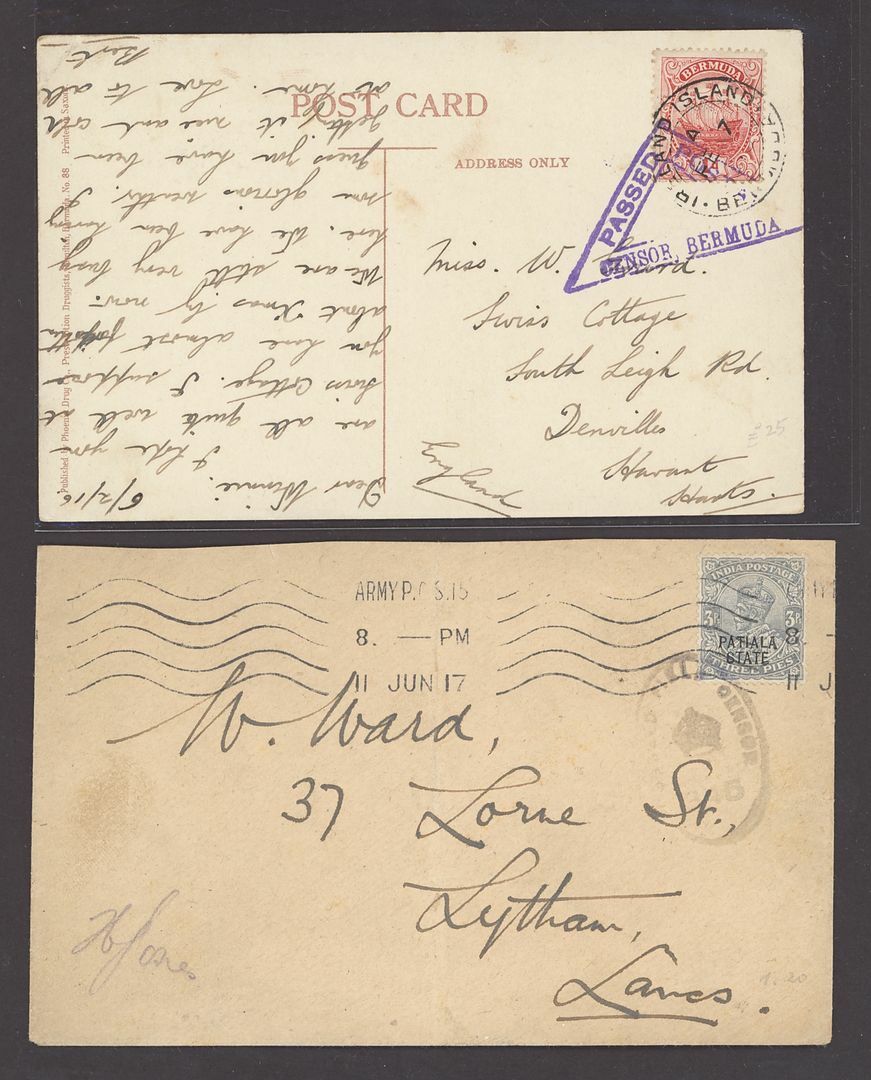 POST CARD
ADDRESS ONLY
BERMUDA
PASSED
CENSOR, BERMUDA
IRELAND ISLAND
FE 7
Miss. W.
Swiss Cottage
South Leigh Rd.
Denvilles
Havant
Hants.
England
25
6/2/16
Dear Winnie.
I hope you
are all quite well at
Swiss Cottage. I suppose
you have almost forgotten
about Xmas by now.
We are still very busy
here. We have been having
some glorious weather. I
guess you have been
getting it nice and cold
at home. Love to all
Bert
Published by Phoenix Drug Co., Prescription Druggists, Hamilton, Bermuda, No. 88 Printed in Saxony
ARMY P.O S.15
8. — PM
11 JUN 17
INDIA POSTAGE
3P 3P
PATIALA
STATE
THREE PIES
8 -
11 J
CENSOR
W. Ward,
37 Lorne St.,
Lytham,
Lancs.
H Jones
1.20